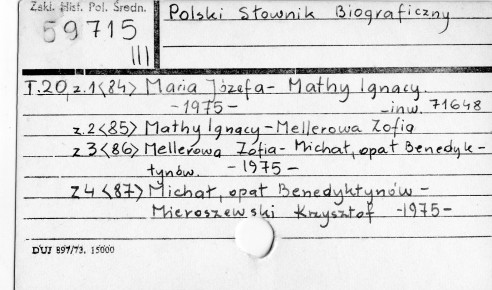 Zakł. Hist. Pol. Średn.
59715
III
Polski Słownik Biograficzny
T.20, z.1<84> Maria Józefa - Mathy Ignacy.
-1975- -inw. 71648
z.2<85> Mathy Ignacy - Mellerowa Zofia
z3<86> Mellerowa Zofia - Michał, opat Benedyk-
tynów. -1975-
z4<87> Michał, opat Benedyktynów -
Mieroszewski Krzysztof -1975-
DUJ 897/73. 15000